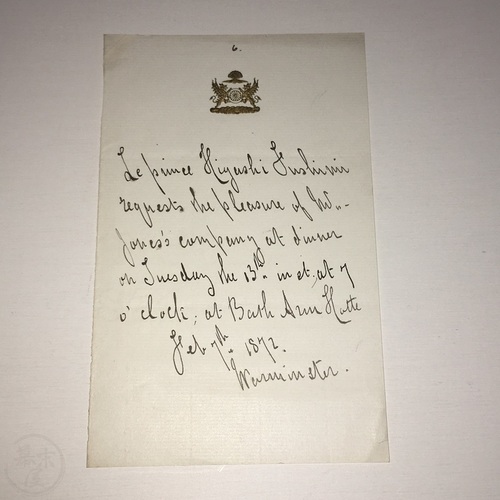 6.
Le prince Hiyashi Fushimi
requests the pleasure of Mr.
Jones's company at dinner
on Tuesday the 13th inst. at 7
o' clock; at Bath Arm Hotte
Feb 7th. 1872.
Warminster.